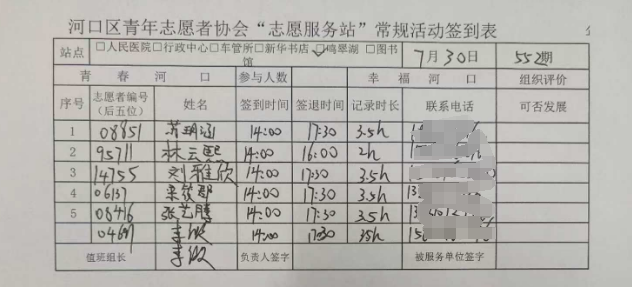 河口区青年志愿者协会“志愿服务站”常规活动签到表
站点 □人民医院□行政中心□车管所□新华书店 □鸣翠湖 □图书馆 7月30日 552期
青春河口 参与人数 幸福河口 组织评价
序号 志愿者编号（后五位） 姓名 签到时间 签退时间 记录时长 联系电话 可否发展
1 08851 14:00 17:30 3.5h
2 95711 林云熙 14:00 16:00 2h
3 14755 刘雅欣 14:00 17:30 3.5h
4 06137 14:00 17:30 3.5h
5 08416 张艺腾 14:00 17:30 3.5h
0469 14:00 17:30 35h
值班组长 负责人签字 被服务单位签字